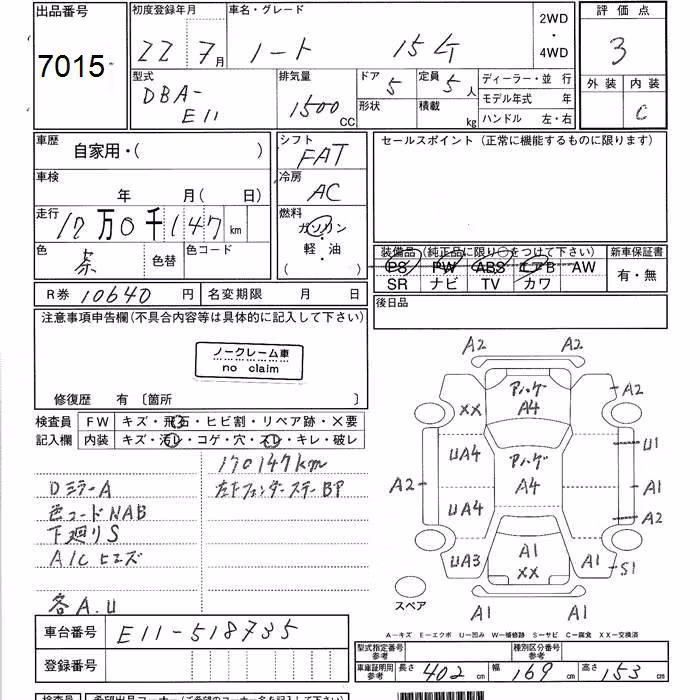 出品番号
7015
初度登録年月
22 7月
車名・グレード
ノート 15G
2WD
・
4WD
評価点
3
外装 内装
C
型式
DBA-
E11
排気量
1500CC
ドア 5
定員 5人
形状
積載 kg
ディーラー・並行
モデル年式 年
ハンドル 左・右
車歴
自家用・( )
車検
年 月( 日)
走行
17万0千147km
色
茶
色替
色コード
シフト
FAT
冷房
AC
燃料
ガソリン
・
軽・油
( )
セールスポイント (正常に機能するものに限ります)
装備品 (純正品に限り〇をつけて下さい)
PS PW ABS エアB AW
SR ナビ TV カワ
新車保証書
有・無
R券 10640円
名変期限 月 日
後日品
注意事項申告欄(不具合内容等は具体的に記入して下さい)
ノークレーム車
no claim
修復歴 有 〔箇所 〕
検査員
記入欄
FW キズ・飛石・ヒビ割・リペア跡・X要
内装 キズ・汚レ・コゲ・穴・スレ・キレ・破レ
170147km
Dミラー A
左下フェンダーステーBP
色コードNAB
下廻りS
A/Cヒエズ
各A.U
A2 A2
XX
アハゲ
A4
A2
UA4
アハゲ
A4
U1
A2
A1
UA4
A2
UA3
A1
XX
A1
S1
A1 A1
スペア
A-キズ E-エクボ U-凹み W-補修跡 S-サビ C-腐食 XX-交換済
車台番号
E11-518735
登録番号
型式指定番号
参考
種別区分番号
参考
車庫証明用
参考
長さ 402cm
幅 169cm
高さ 153cm